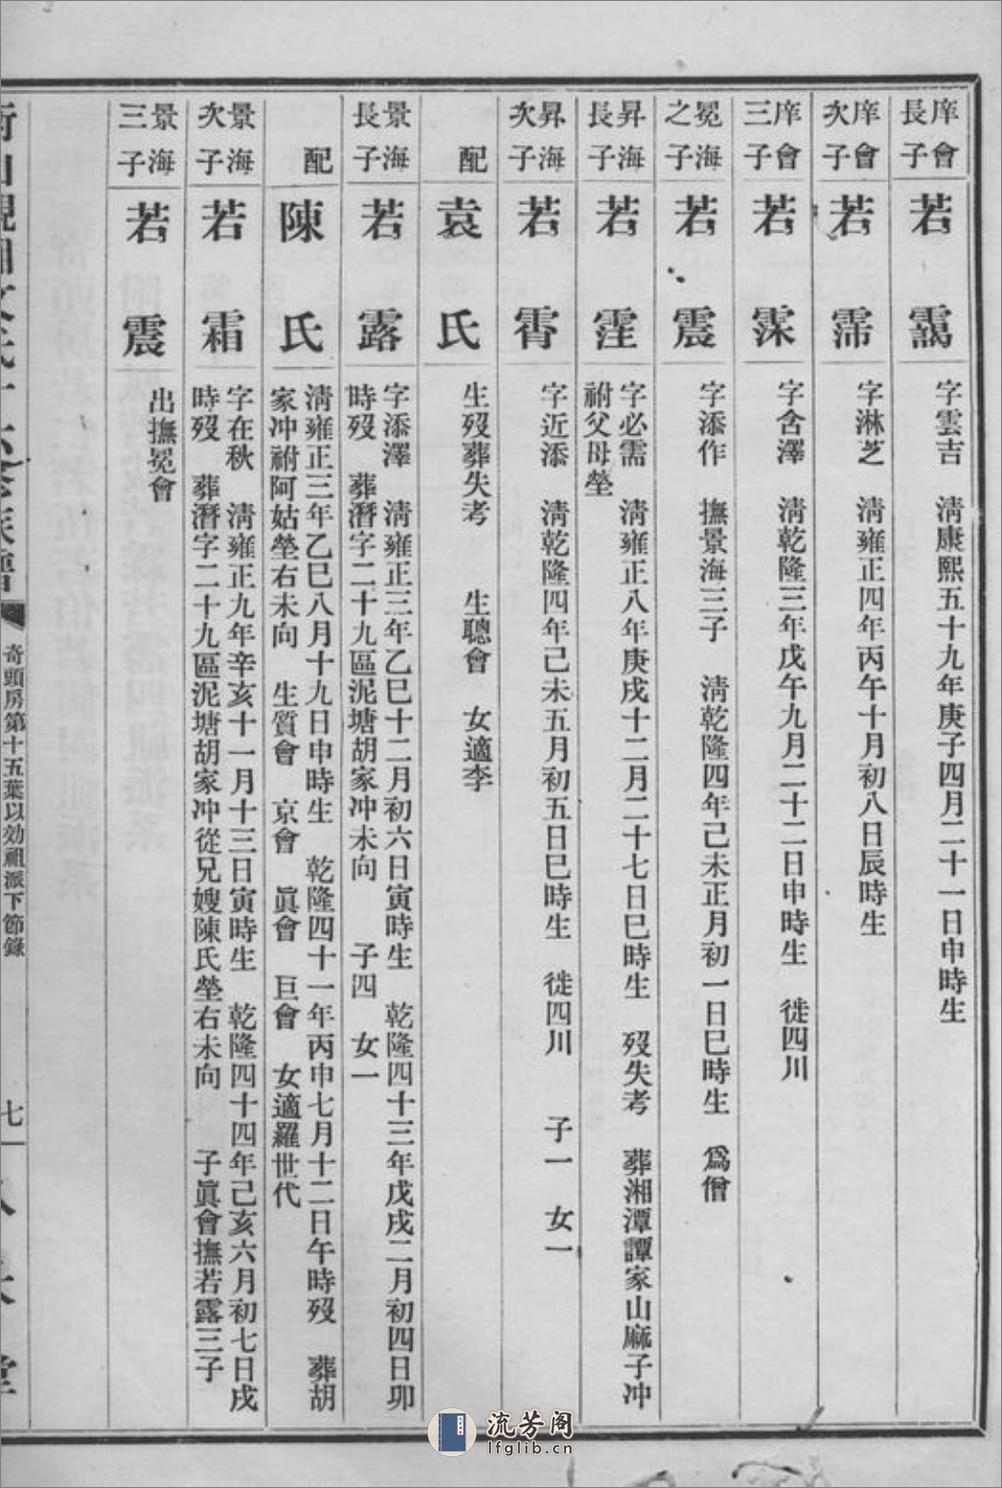 庠會長子
若靄
字雲吉　清康熙五十九年庚子四月二十一日申時生
庠會次子
若霈
字淋芝　清雍正四年丙午十月初八日辰時生
庠會三子
若霂
字含澤　清乾隆三年戊午九月二十二日申時生　徙四川
冕會之子
若震
字添作　撫景海三子　清乾隆四年己未正月初一日巳時生　爲僧
昇海長子
若霔
字必需　清雍正八年庚戌十二月二十七日巳時生　歿失考　葬湘潭譚家山麻子冲
祔父母塋
昇海次子
若霄
字近添　清乾隆四年己未五月初五日巳時生　徙四川　子一　女一
配
袁氏
生歿葬失考　生聰會　女適李
景海長子
若露
字添澤　清雍正三年乙巳十二月初六日寅時生　乾隆四十三年戊戌二月初四日卯
時歿　葬潛字二十九區泥塘胡家冲未向　子四　女一
配
陳氏
清雍正三年乙巳八月十九日申時生　乾隆四十一年丙申七月十二日午時歿　葬胡
家冲祔阿姑塋右未向　生質會　京會　眞會　巨會　女適羅世代
景海次子
若霜
字在秋　清雍正九年辛亥十一月十三日寅時生　乾隆四十四年己亥六月初七日戌
時歿　葬潛字二十九區泥塘胡家冲從兄嫂陳氏塋右未向　子眞會撫若露三子
景海三子
若震
出撫冕會
奇頭房第十五葉以効祖派下節錄
七
流芳阁
lfglib.cn